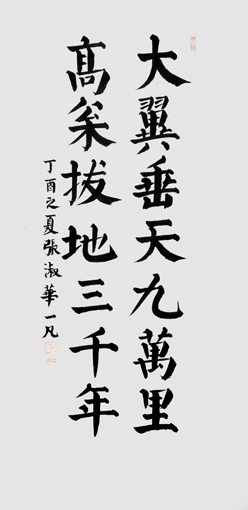 大翼垂天九萬里
髙枀拔地三千年
丁酉之夏張淑華一凡